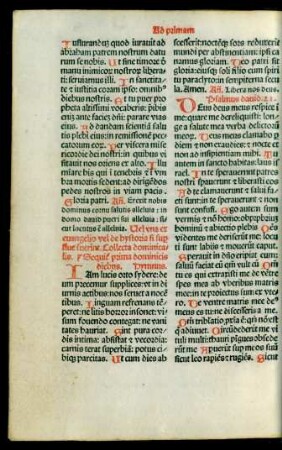 Ad primam
Iusiurandum quod iurauit ad
abraham patrem nostrum datu
rum se nobis. Ut sine timore d̄
manu inimicor nostror libera-
ti: seruiamus illi. In sanctita-
te et iusticia coram ipso: omnib⁹
diebus nostris. Et tu puer pro
pheta altissimi vocaberis: pibis
eni ante faciē dn̄i: parare vias
eius. Ad dandam scientiā salu
tis plebi eius: in remissionē pec
catorum eor. Per viscera mise
ricordie dei nostri: in quibus vi
sitauit nos oriens ex alto. Illu
minare his qui in tenebris et ī vm
bra mortis sedent: ad dirigēdos
pedes nostros in viam pacis.
Gloria patri. Añ. Erexit nobis
dominus cornu salutis alleluia:
in domo dauid pueri sui alleluia: si-
cut locutus ē alleluia.
euangelio vel de hystoria
Collecta dominica
lis. Sequit prima dominicis
diebus. Hymnus.
Iam lucis orto sydere: deum
precemur supplices: vt in di
urnis actibus nos seruet a nocē
tibus. Linguam refrenans tē-
peret: ne litis horror insonet: vi-
sum fouendo contegat: ne vani
tates hauriat. Sint pura cor-
dis intima: absistat et vecordia:
carnis terat superbiā: potus ci-
biq; parcitas. Ut cum dies ab
scesserit: noctēq; sors reduxerit:
mundi per abstinentiam: ipsi ca
namus gloriam. Deo patri sit
gloria: eiusq; soli filio: cum spiritu
paraclyto: in sempiterna secula.
Amen. Añ. Libera nos deus.
Psalmus dauid. 21.
Deus deus meus respice ī
me: quare me dereliquisti: lon-
ge a salute mea verba delictorū
meorū. Deus meus clamabo p
diem et non exaudies: et nocte et
non ad insipientiam mihi. Tu
autem in sancto habitas: laus is-
rael. In te sperauerunt patres
nostri: sperauerūt et liberasti eos.
Ad te clamauerūt et salui facti
sunt: in te sperauerūt et non sunt
confusi. Ego autem sum
vermis et nō homo: obprobriuȝ
hominū et abiectio plebis. Oēs
vidētes me deriserūt me: locuti
sunt labijs et mouerūt caput.
Sperauit in dn̄o eripiat eum:
saluū faciat eū qm̄ vult eū. Qm̄
tu es qui extraxisti me de vētre
spes mea ab vberibus matris
mee: in te proiectus sum ex vte-
ro. De ventre matris mee de⁹
meus es tu: ne discesseris a me.
Qm̄ tribulatio p̄xīa ē: qm̄ nō ē
q adiuuet. Circūdederūt me vi
tuli multi: thauri pīgues obsede
rūt me. Aperuerūt sup me os suū:
sicut leo rapiēs et rugiēs. Sicut